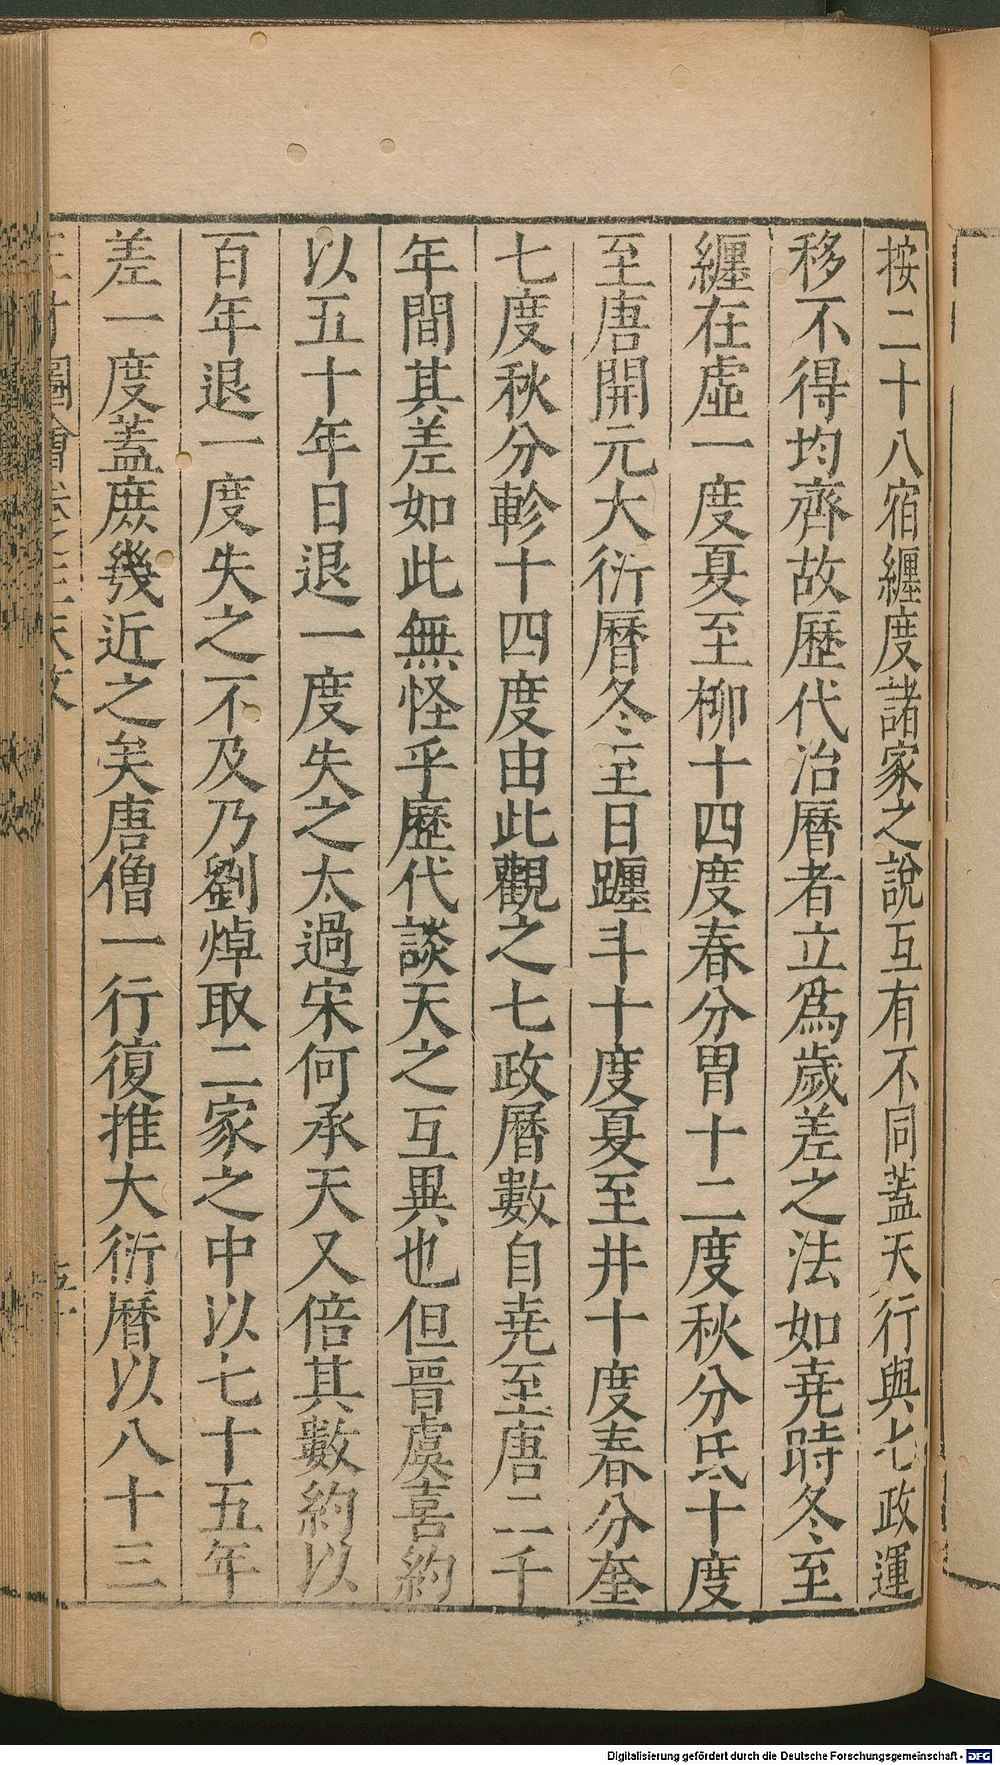 按二十八宿纏度諸家之說互有不同蓋天行與七政運
移不得均齊故歷代治曆者立爲歲差之法如堯時冬至
纏在虛一度夏至柳十四度春分胃十二度秋分氐十度
至唐開元大衍曆冬至日躔斗十度夏至井十度春分奎
七度秋分軫十四度由此觀之七政曆數自堯至唐二千
年間其差如此無怪乎歷代談天之互異也但晉虞喜約
以五十年日退一度失之太過宋何承天又倍其數約以
百年退一度失之不及乃劉焯取二家之中以七十五年
差一度蓋庶幾近之矣唐僧一行復推大衍曆以八十三
三才圖會卷之三天文
五十
Digitalisierung gefördert durch die Deutsche Forschungsgemeinschaft - DFG